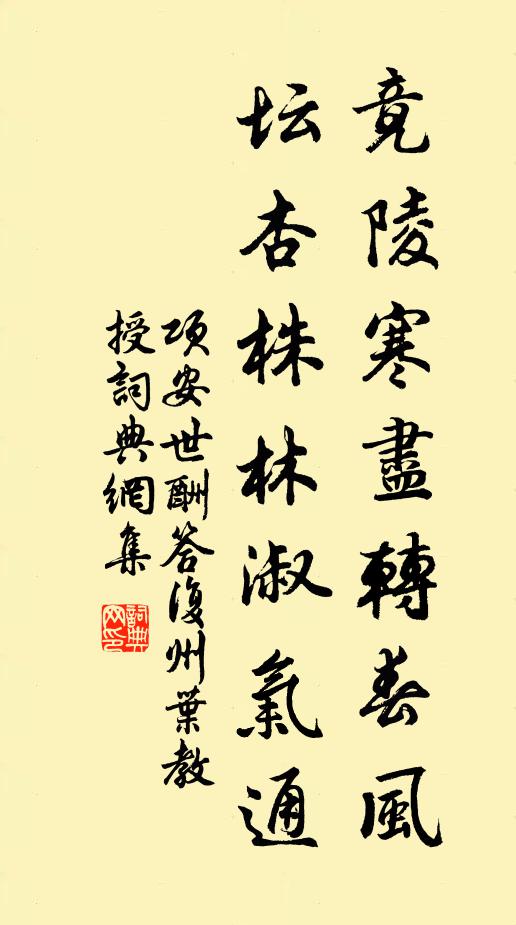 竟陵寒盡轉春風
坛杏株林淑氣通
项安世酬答復州葉教
授詞典網集
詞典网印